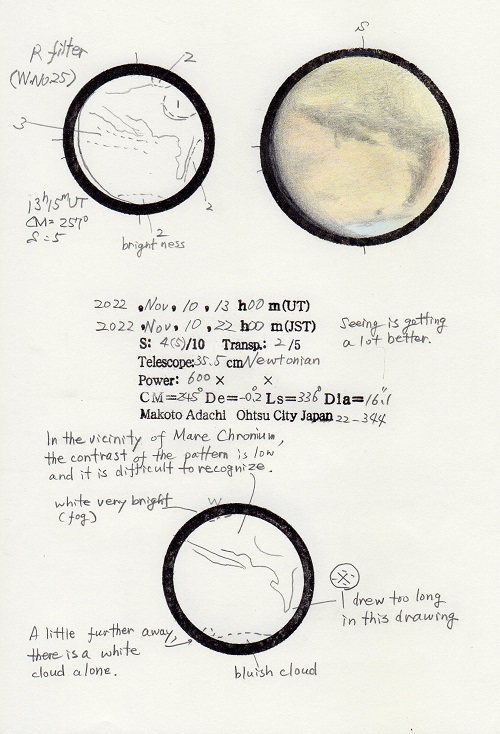 S
R filter
(W.No25)
2
3
13h15mUT
CM=257°
S=5
2
2
brightness
2022 , Nov, 10 , 13 h00 m(UT)
2022 , Nov, 10 , 22 h00 m(JST)
S: 4(5)/10 Transp.: 2/5
Telescope: 35.5 cm Newtonian
Power: 600 × ×
CM=245° De=-0.2° Ls=336° Dia=16".1
Makoto Adachi Ohtsu City Japan 22-344
Seeing is getting
a lot better.
In the vicinity of Mare Chronium,
the contrast of the pattern is low
and it is difficult to recognize.
white very bright
(fog)
W
I drew too long
in this drawing
A little further away,
there is a white
cloud alone.
bluish cloud